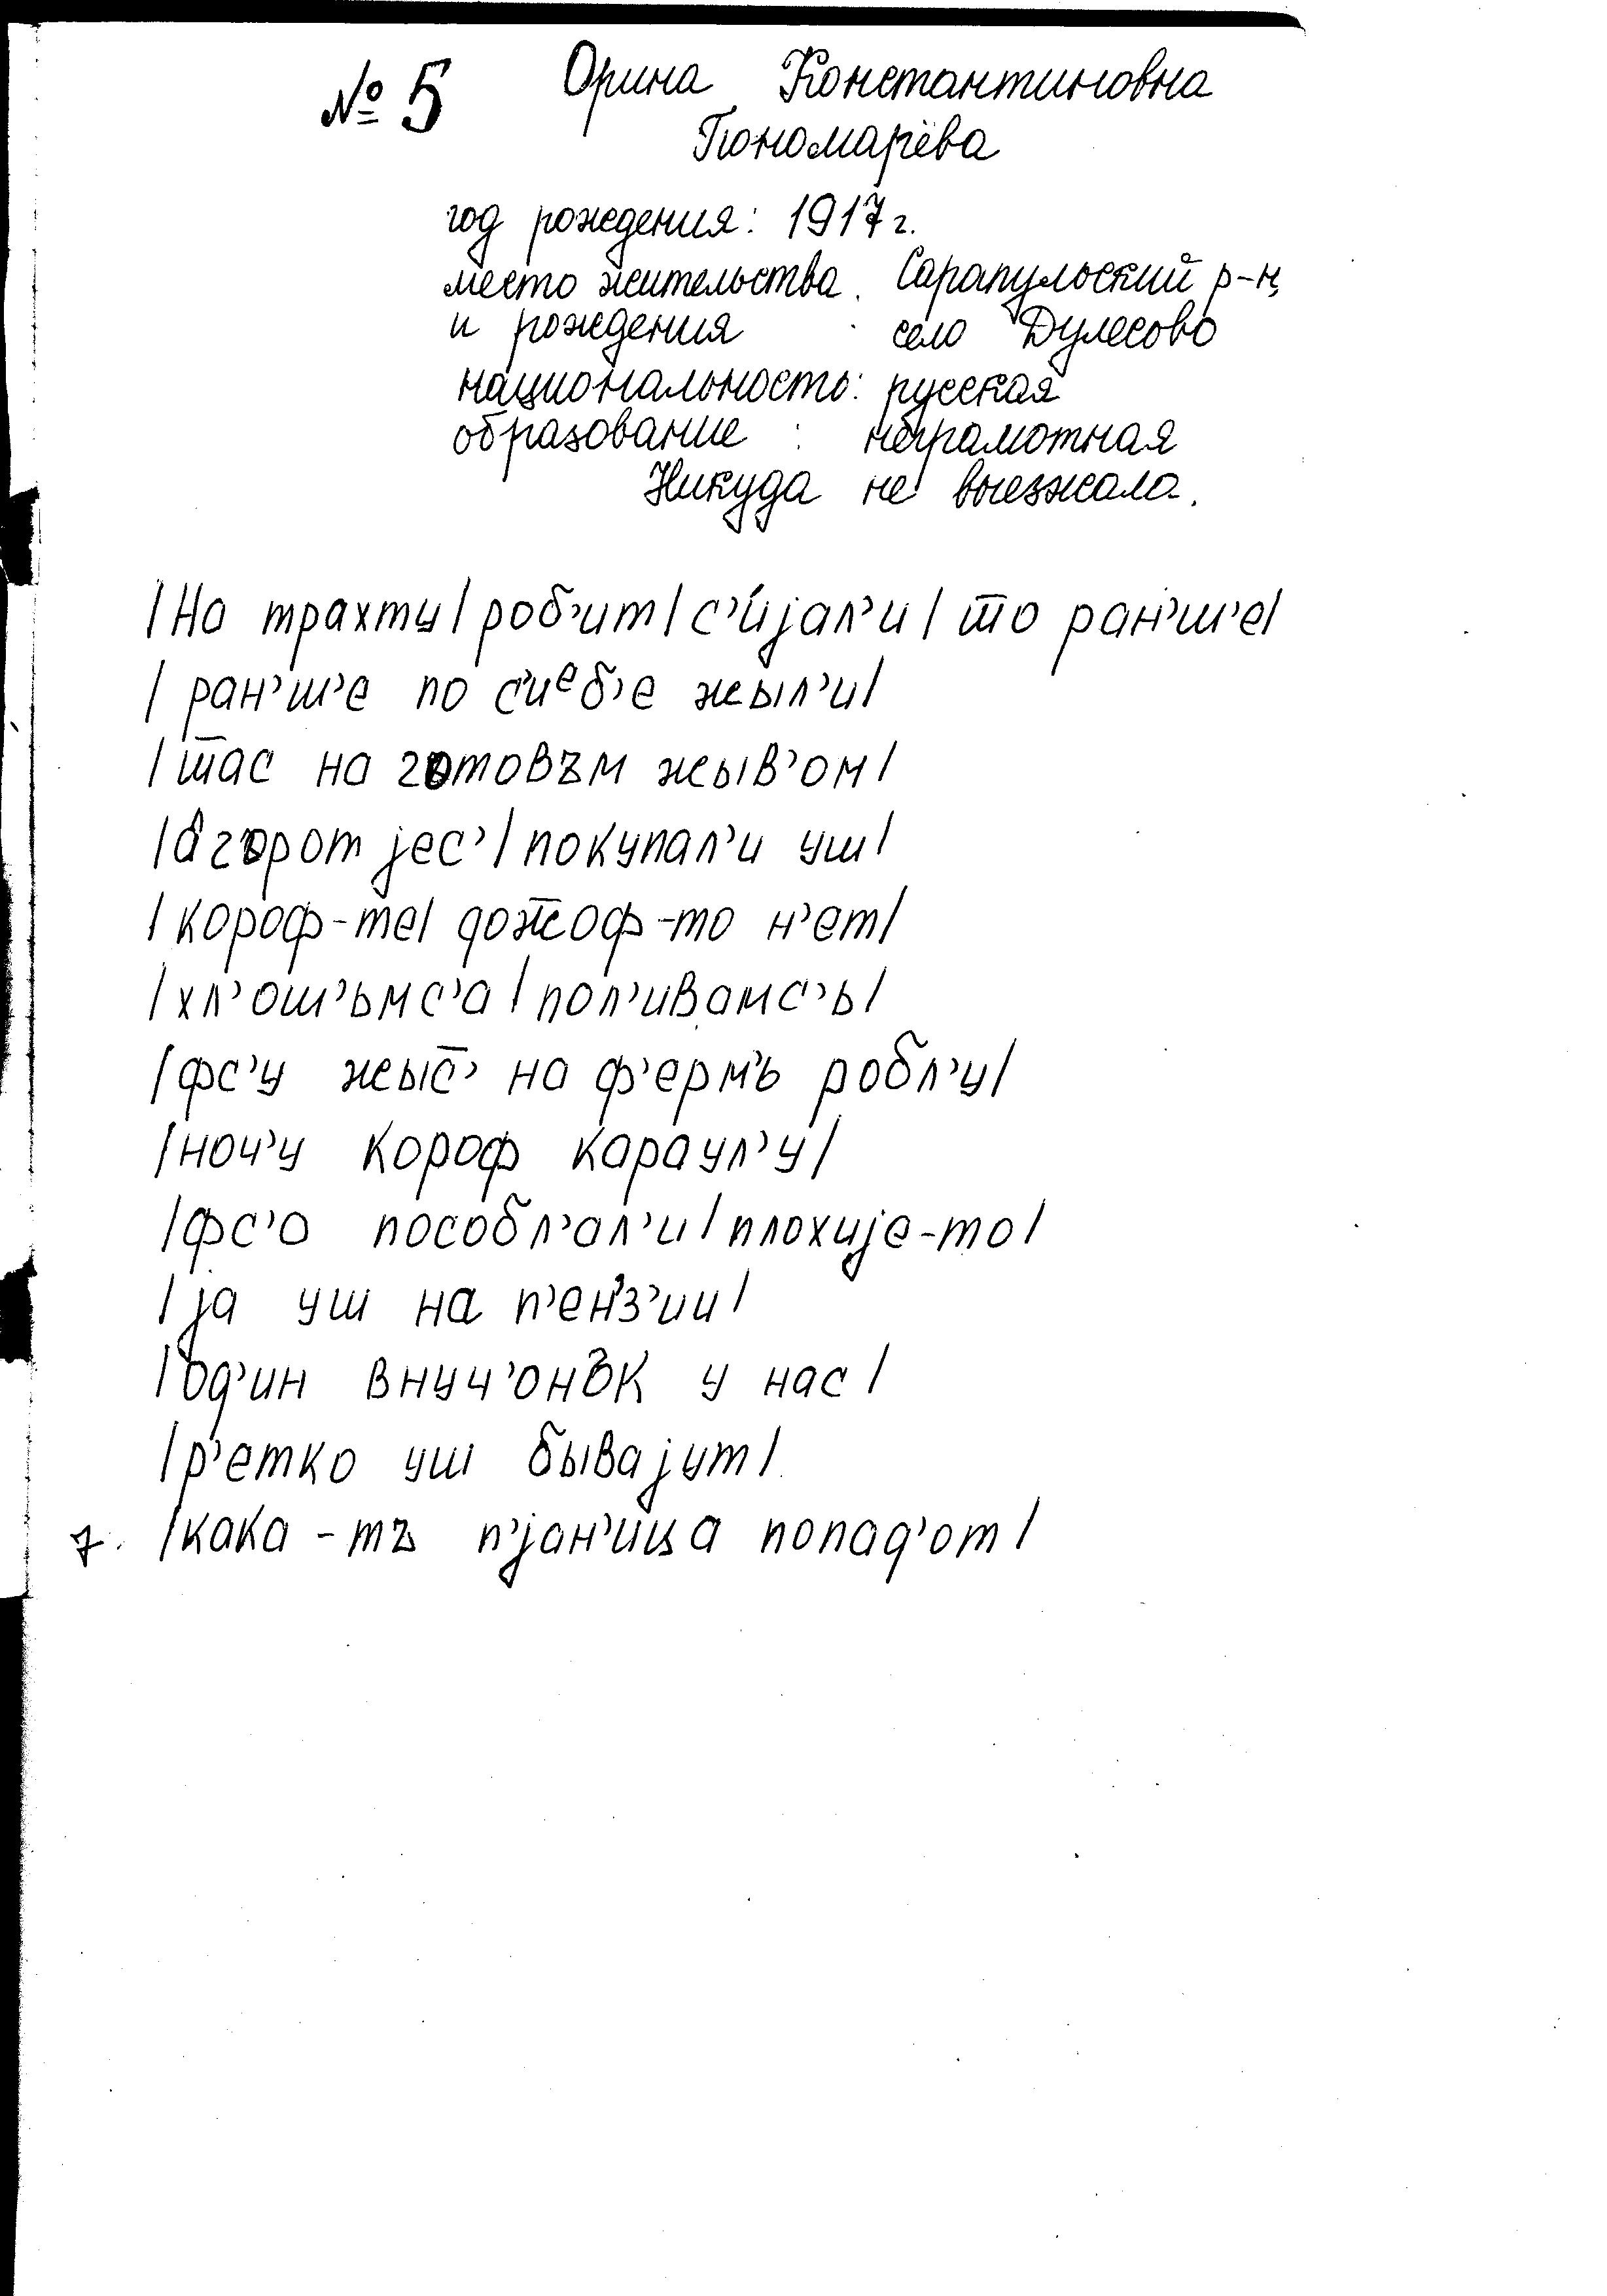 № 5 Орина Константиновна
Пономарёва
год рождения: 1917 г.
место жительства. Сарапульский р-н,
и рождения : село Дулесово
национальность: русская
образование : неграмотная
Никуда не выезжала.
|На трахту| роб’ит| с’ијал’и| то ран’ш’е|
| ран’ш’е по с’иᵉб’е жыл’и|
| ш̅ас на готовъм жыв’ом|
|огорот јес’| покупал’и уш|
| короф-те| дож̅оф-то н’ет|
| хл’ош’ьмс’а | пол’ивамс’ь|
| фс’у жыс̅’ на ф’ерм’ь робл’у|
| ноч’у короф караул’у|
| фс’о пособл’ал’и| плохије-то|
| ја уш на п’ен’з’ии|
| од’ин внуч’онък у нас|
| р’етко уш бывајут|
7. | кака-тъ п’јан’ица попад’от|